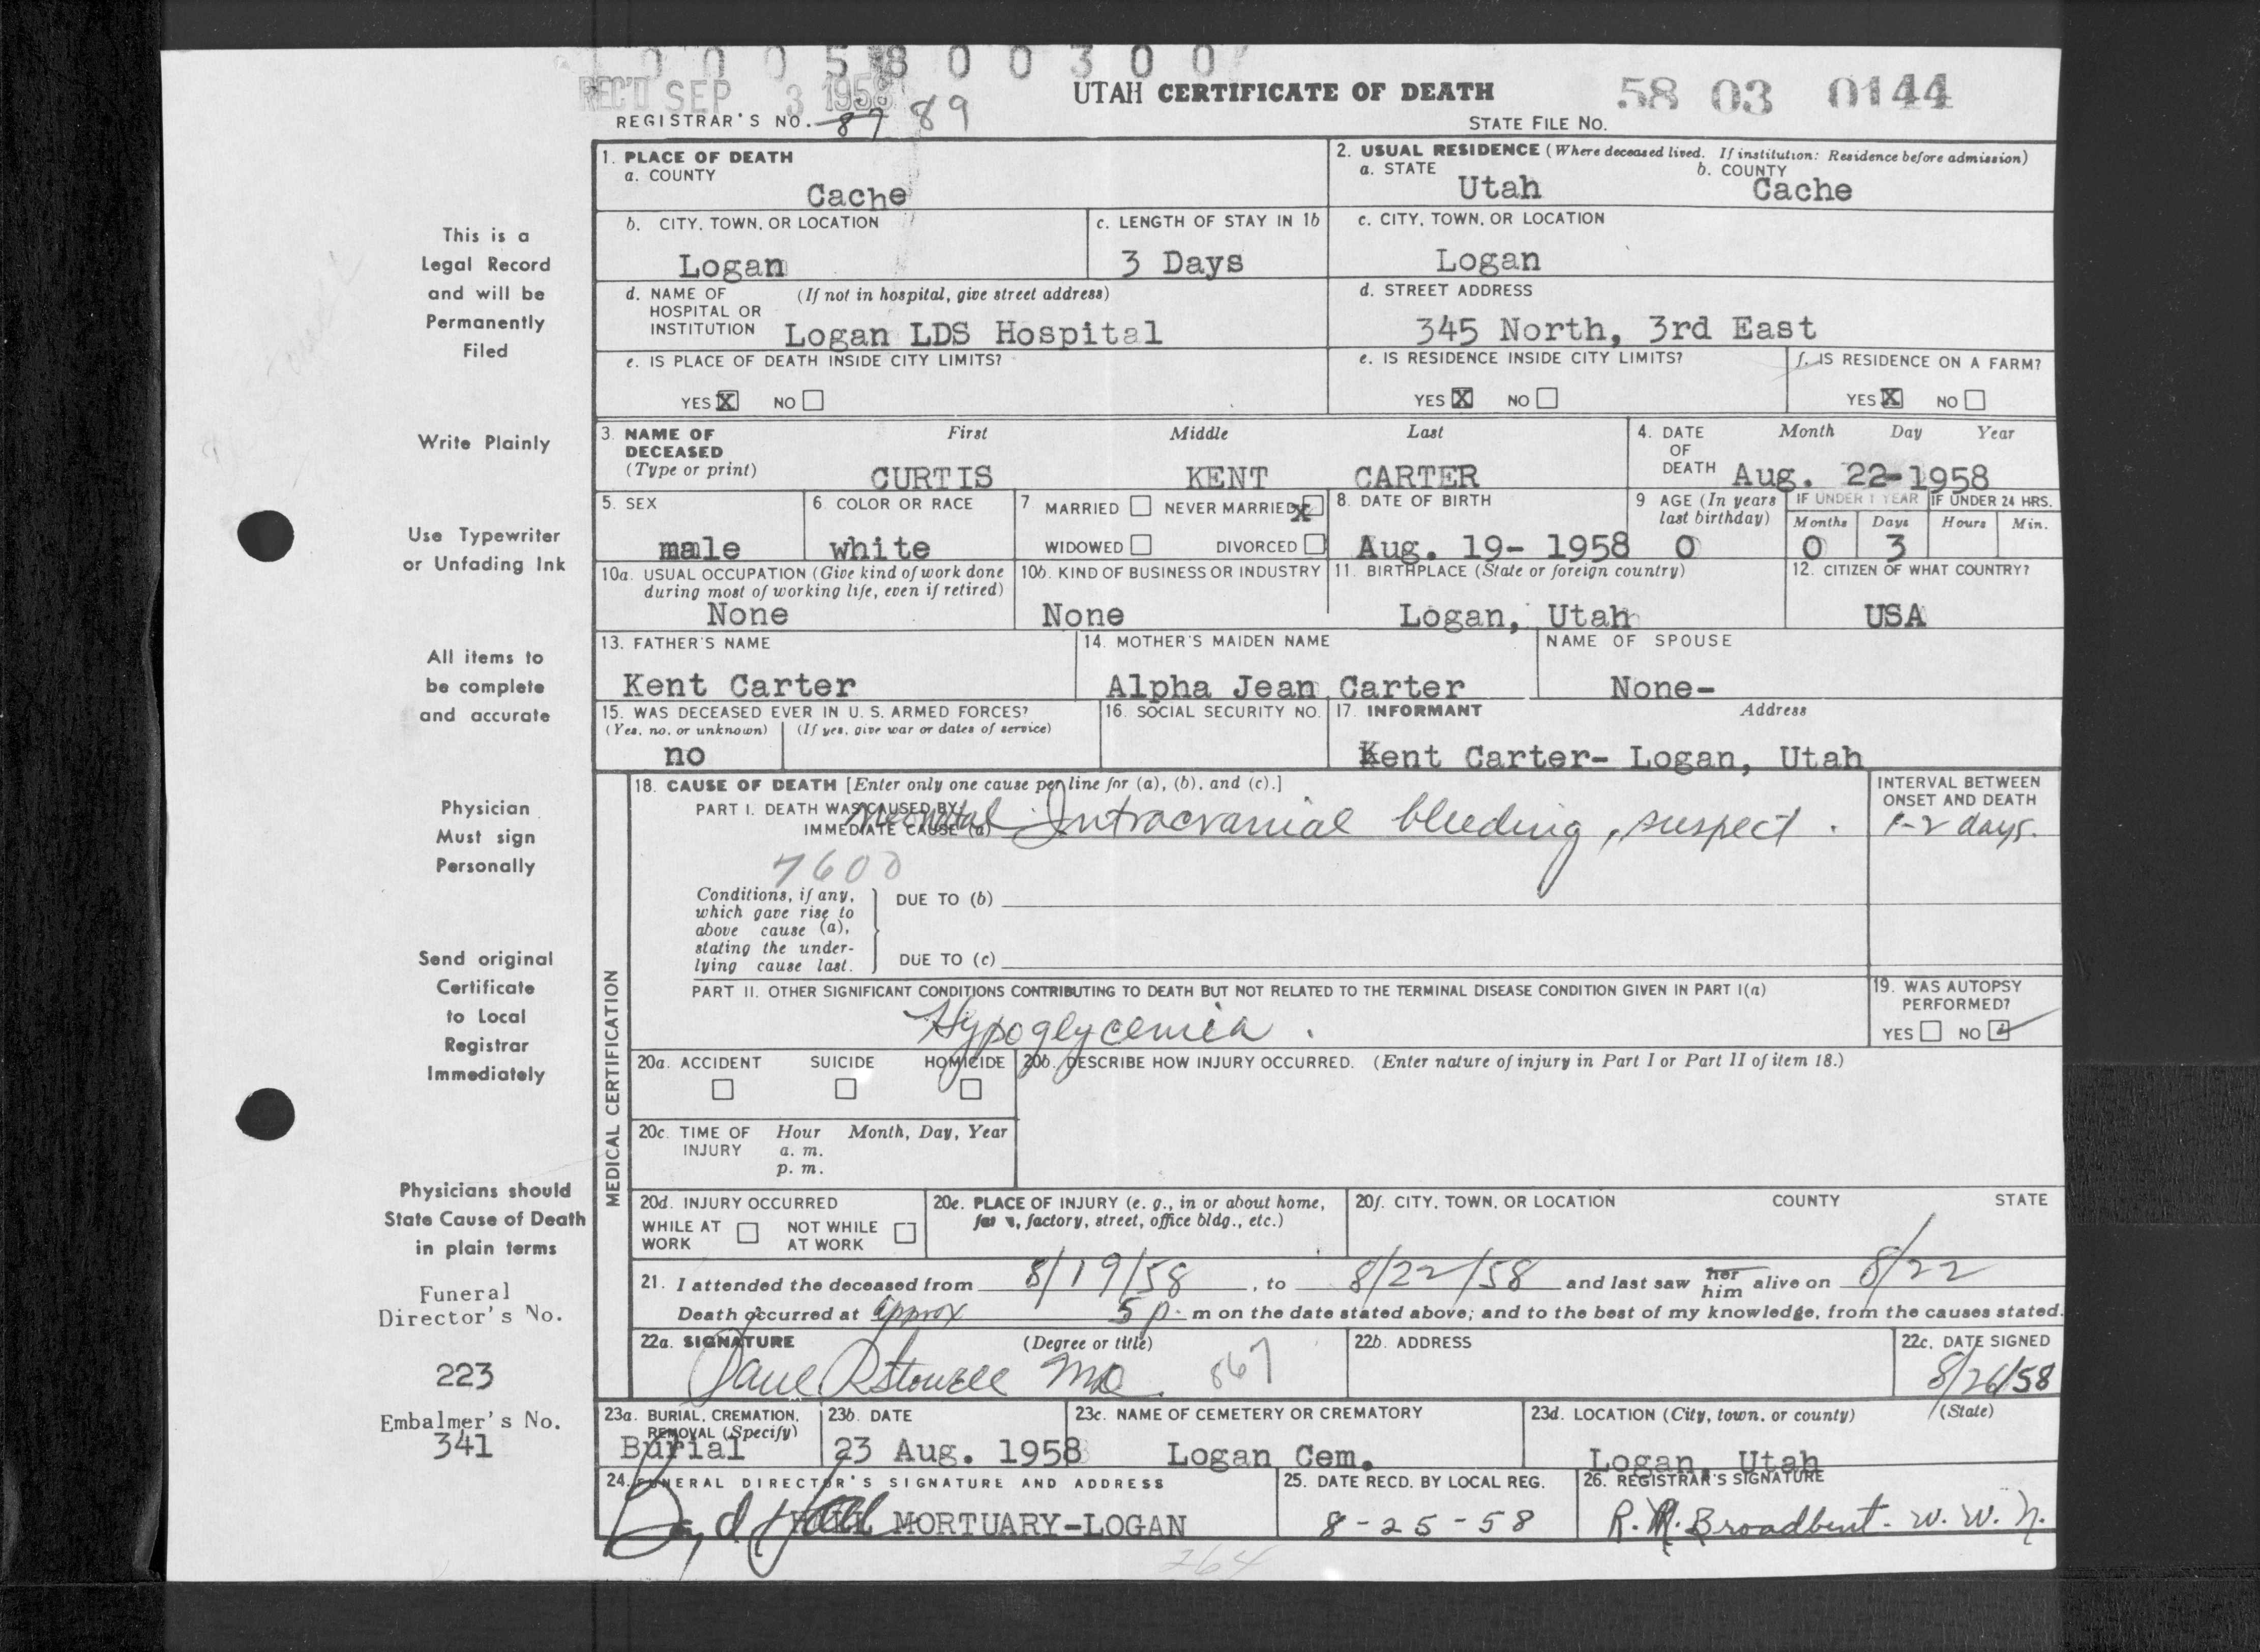 0 0 0 5 8 0 0 3 0 0
REC'D SEP 3 1958
UTAH CERTIFICATE OF DEATH
58 03 0144
REGISTRAR'S NO. 87 89
STATE FILE NO.
1. PLACE OF DEATH
a. COUNTY
Cache
2. USUAL RESIDENCE (Where deceased lived. If institution: Residence before admission)
a. STATE
Utah
b. COUNTY
Cache
b. CITY, TOWN, OR LOCATION
Logan
c. LENGTH OF STAY IN 1b
3 Days
c. CITY, TOWN, OR LOCATION
Logan
d. NAME OF (If not in hospital, give street address)
HOSPITAL OR
INSTITUTION Logan LDS Hospital
d. STREET ADDRESS
345 North, 3rd East
e. IS PLACE OF DEATH INSIDE CITY LIMITS?
YES X NO
e. IS RESIDENCE INSIDE CITY LIMITS?
YES X NO
f. IS RESIDENCE ON A FARM?
YES X NO
3. NAME OF First Middle Last
DECEASED
(Type or print) CURTIS KENT CARTER
4. DATE Month Day Year
OF
DEATH Aug. 22-1958
5. SEX
male
6. COLOR OR RACE
white
7 MARRIED NEVER MARRIED X
WIDOWED DIVORCED
8. DATE OF BIRTH
Aug. 19- 1958
9 AGE (In years
last birthday)
0
IF UNDER 1 YEAR
Months Days
0 3
IF UNDER 24 HRS.
Hours Min.
10a. USUAL OCCUPATION (Give kind of work done
during most of working life, even if retired)
None
10b. KIND OF BUSINESS OR INDUSTRY
None
11. BIRTHPLACE (State or foreign country)
Logan, Utah
12. CITIZEN OF WHAT COUNTRY?
USA
13. FATHER'S NAME
Kent Carter
14. MOTHER'S MAIDEN NAME
Alpha Jean Carter
NAME OF SPOUSE
None-
15. WAS DECEASED EVER IN U. S. ARMED FORCES?
(Yes, no, or unknown) (If yes, give war or dates of service)
no
16. SOCIAL SECURITY NO.
17. INFORMANT Address
Kent Carter- Logan, Utah
18. CAUSE OF DEATH [Enter only one cause per line for (a), (b), and (c).]
PART I. DEATH WAS CAUSED BY:
IMMEDIATE CAUSE (a) Neonatal Intracranial bleeding, suspect.
INTERVAL BETWEEN
ONSET AND DEATH
1-2 days.
7600
Conditions, if any,
which gave rise to
above cause (a),
stating the under-
lying cause last.
DUE TO (b)
DUE TO (c)
PART II. OTHER SIGNIFICANT CONDITIONS CONTRIBUTING TO DEATH BUT NOT RELATED TO THE TERMINAL DISEASE CONDITION GIVEN IN PART I(a)
Hypoglycemia.
19. WAS AUTOPSY
PERFORMED?
YES NO ✓
20a. ACCIDENT SUICIDE HOMICIDE
20b. DESCRIBE HOW INJURY OCCURRED. (Enter nature of injury in Part I or Part II of item 18.)
20c. TIME OF Hour Month, Day, Year
INJURY a. m.
p. m.
20d. INJURY OCCURRED
WHILE AT NOT WHILE
WORK AT WORK
20e. PLACE OF INJURY (e. g., in or about home,
factory, street, office bldg., etc.)
20f. CITY, TOWN, OR LOCATION COUNTY STATE
21. I attended the deceased from 8/19/58, to 8/22/58 and last saw her him alive on 8/22
Death occurred at approx 5 p. m on the date stated above; and to the best of my knowledge, from the causes stated.
22a. SIGNATURE (Degree or title)
MD 867
22b. ADDRESS
22c. DATE SIGNED
8/26/58
23a. BURIAL, CREMATION,
REMOVAL (Specify)
Burial
23b. DATE
23 Aug. 1958
23c. NAME OF CEMETERY OR CREMATORY
Logan Cem.
23d. LOCATION (City, town, or county) (State)
Logan, Utah
24. FUNERAL DIRECTOR'S SIGNATURE AND ADDRESS
HALL MORTUARY-LOGAN
25. DATE RECD. BY LOCAL REG.
8-25-58
26. REGISTRAR'S SIGNATURE
R. M. Broadbent - W. W. N.
264
MEDICAL CERTIFICATION
This is a
Legal Record
and will be
Permanently
Filed
Write Plainly
Use Typewriter
or Unfading Ink
All items to
be complete
and accurate
Physician
Must sign
Personally
Send original
Certificate
to Local
Registrar
Immediately
Physicians should
State Cause of Death
in plain terms
Funeral
Director's No.
223
Embalmer's No.
341